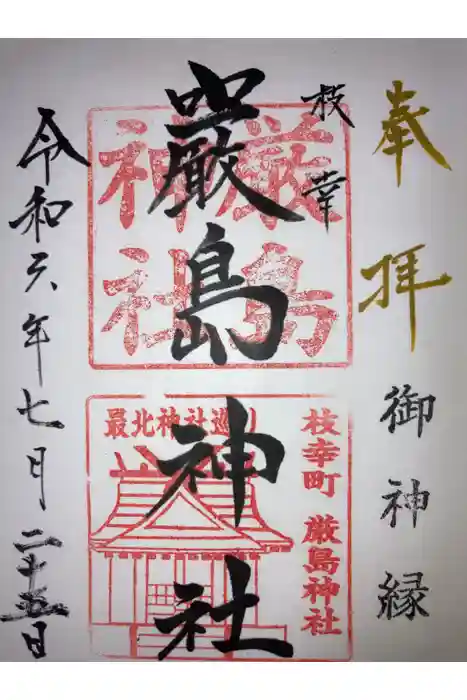 奉拝
御神縁
枝幸
嚴島神社
厳島
神社
枝幸町 厳島神社
最北神社巡り
令和六年七月二十五日